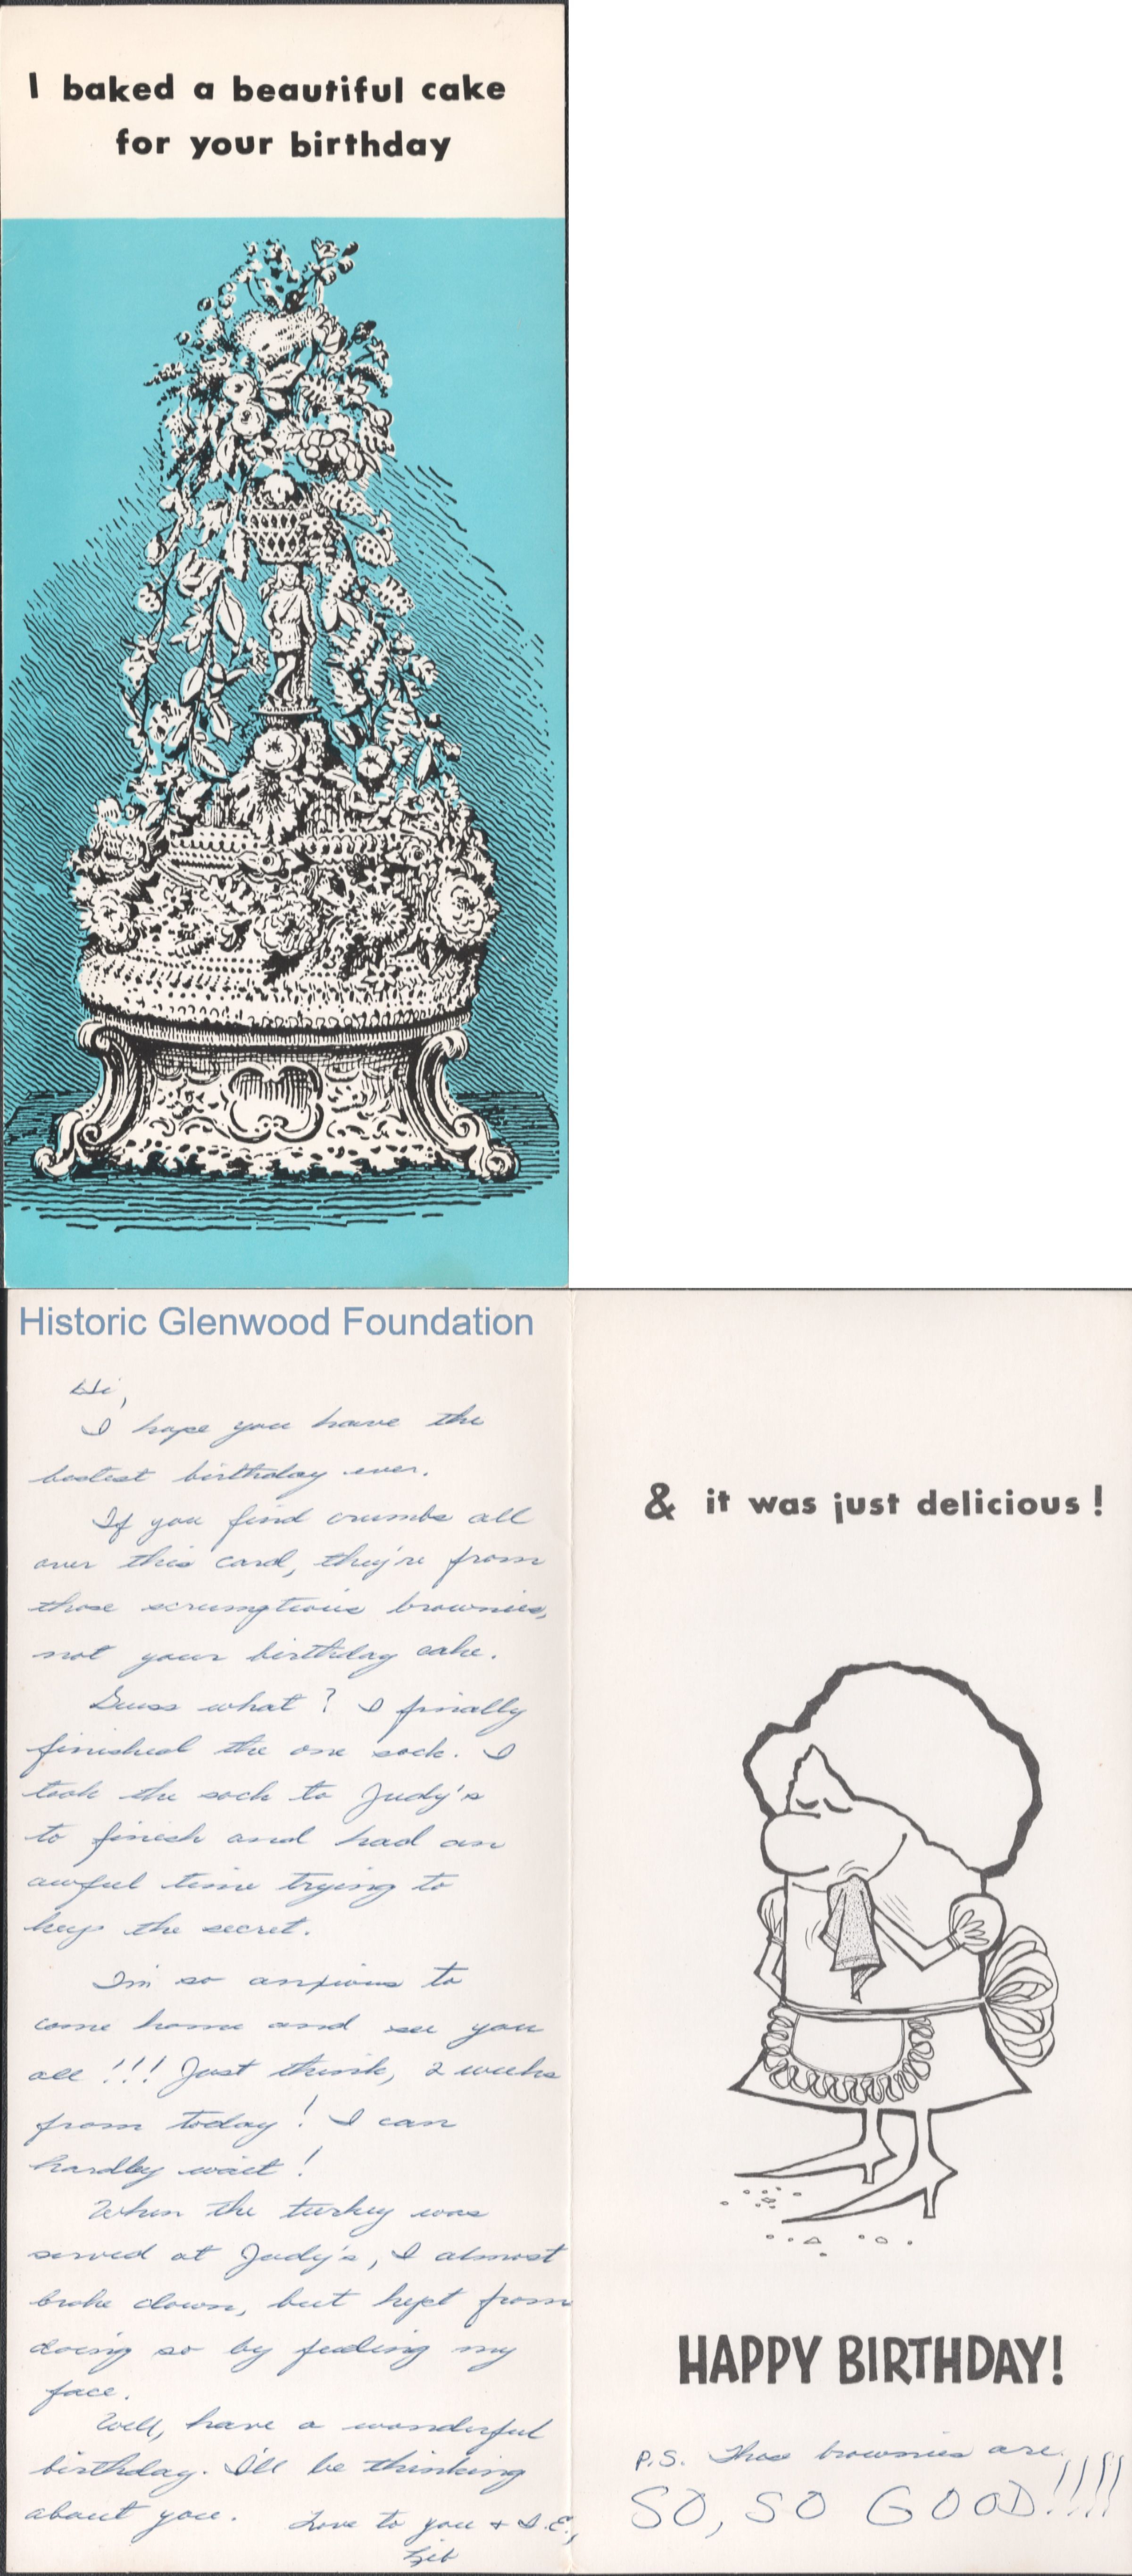 I baked a beautiful cake
for your birthday
Historic Glenwood Foundation
Hi,
I hope you have the
bestest birthday ever.
If you find crumbs all
over this card, they're from
those scrumptious brownies,
not your birthday cake.
Guess what? I finally
finished the one sock. I
took the sock to Judy's
to finish and had an
awful time trying to
keep the secret.
I'm so anxious to
come home and see you
all!!! Just think, 2 weeks
from today! I can
hardly wait!
When the turkey was
served at Judy's, I almost
broke down, but kept from
doing so by feeding my
face.
Well, have a wonderful
birthday. I'll be thinking
about you.
Love to you + D.E.,
Lib
& it was just delicious!
HAPPY BIRTHDAY!
P.S. Those brownies are
SO, SO GOOD!!!!